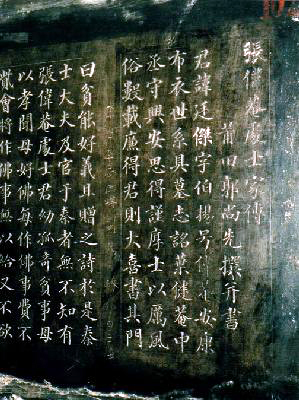 張偉菴處士家傳
莆田郭尚先撰并書
君諱廷傑字伯揚號偉菴安康
布衣世系具墓志銘葉健菴中
丞守興安思得謹厚士以厲風
俗數載廉得君則大喜書其門
曰貧能好義且贈之詩於是秦
士大夫及官于秦者無不知有
張偉菴處士君幼孤奇貧事母
以孝聞母好佛每作佛事費不
貲會將作佛事無以給又不欲